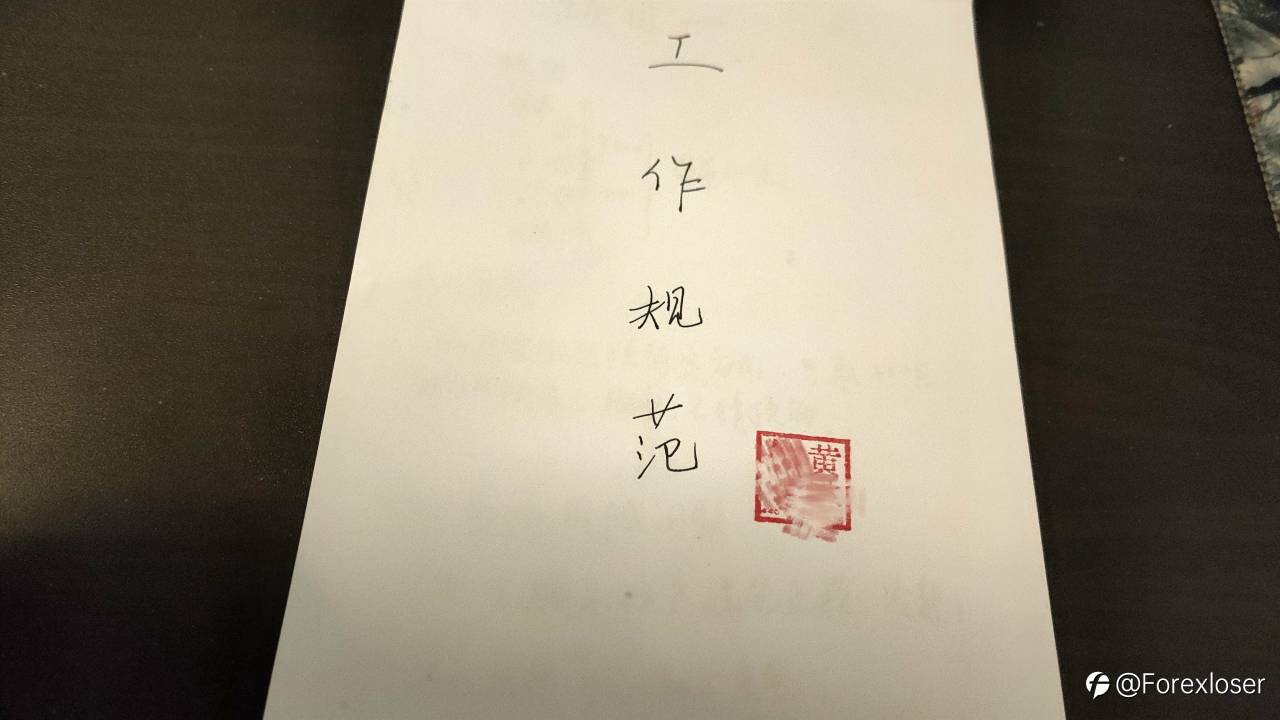 工作规范
黄
@Forexloser